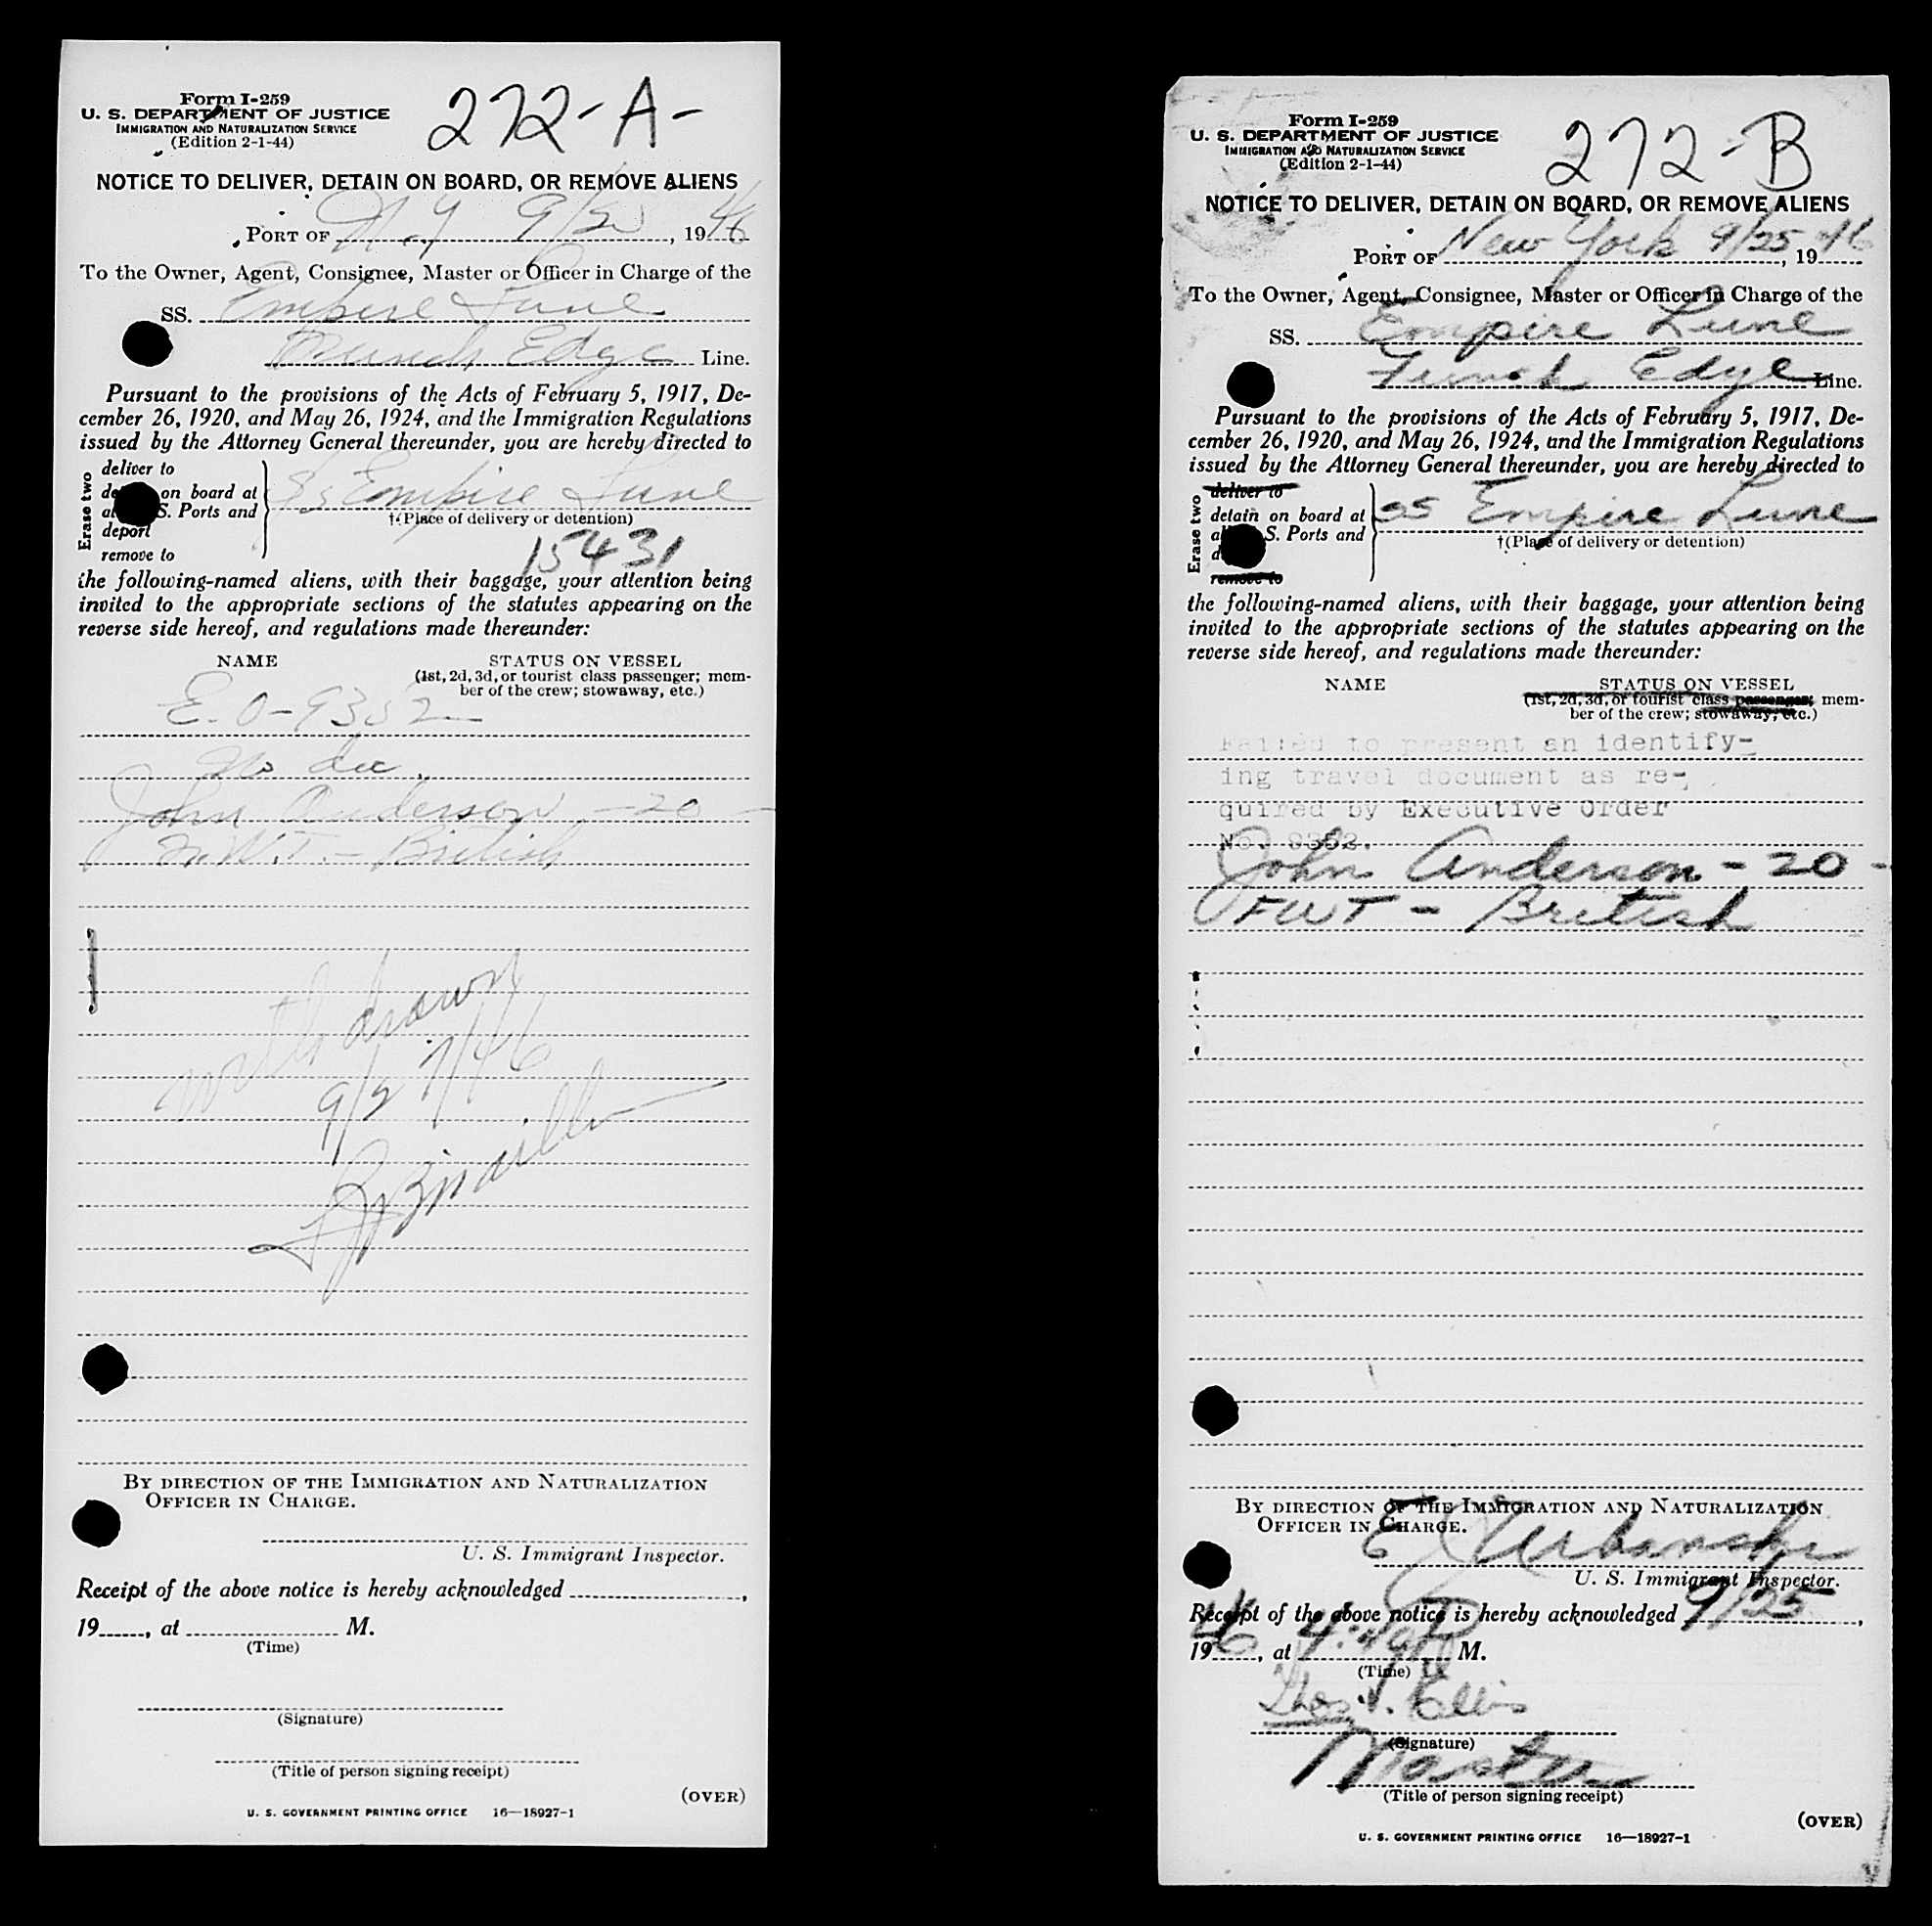 Form I-259
U. S. DEPARTMENT OF JUSTICE
IMMIGRATION AND NATURALIZATION SERVICE
(Edition 2-1-44)
272-A-
NOTICE TO DELIVER, DETAIN ON BOARD, OR REMOVE ALIENS
PORT OF N.Y 9/25, 1946
To the Owner, Agent, Consignee, Master or Officer in Charge of the
SS. Empire Lune
Edge Line.
Pursuant to the provisions of the Acts of February 5, 1917, De-
cember 26, 1920, and May 26, 1924, and the Immigration Regulations
issued by the Attorney General thereunder, you are hereby directed to
Erase two
deliver to
on board at
S. Ports and
deport
remove to
SS Empire Lune
†(Place of delivery or detention)
15431
the following-named aliens, with their baggage, your attention being
invited to the appropriate sections of the statutes appearing on the
reverse side hereof, and regulations made thereunder:
NAME
STATUS ON VESSEL
(1st, 2d, 3d, or tourist class passenger; mem-
ber of the crew; stowaway, etc.)
E.O-9352
No doc.
John Anderson -20-
British
withdrawn
9/27/46
BY DIRECTION OF THE IMMIGRATION AND NATURALIZATION
OFFICER IN CHARGE.
U. S. Immigrant Inspector.
Receipt of the above notice is hereby acknowledged ,
19 , at M.
(Time)
(Signature)
(Title of person signing receipt)
(OVER)
U. S. GOVERNMENT PRINTING OFFICE 16—18927-1
Form I-259
U. S. DEPARTMENT OF JUSTICE
IMMIGRATION AND NATURALIZATION SERVICE
(Edition 2-1-44)
272-B
NOTICE TO DELIVER, DETAIN ON BOARD, OR REMOVE ALIENS
PORT OF New York 9/25, 1946
To the Owner, Agent, Consignee, Master or Officer in Charge of the
SS. Empire Lune
Edye Line.
Pursuant to the provisions of the Acts of February 5, 1917, De-
cember 26, 1920, and May 26, 1924, and the Immigration Regulations
issued by the Attorney General thereunder, you are hereby directed to
Erase two
deliver to
detain on board at
S. Ports and
remove to
SS Empire Lune
†(Place of delivery or detention)
the following-named aliens, with their baggage, your attention being
invited to the appropriate sections of the statutes appearing on the
reverse side hereof, and regulations made thereunder:
NAME
STATUS ON VESSEL
(1st, 2d, 3d, or tourist class passenger; mem-
ber of the crew; stowaway, etc.)
Failed to present an identify-
ing travel document as re-
quired by Executive Order
No. 9352.
John Anderson - 20 -
FWT - British
BY DIRECTION OF THE IMMIGRATION AND NATURALIZATION
OFFICER IN CHARGE.
E J Urbanski
U. S. Immigrant Inspector.
Receipt of the above notice is hereby acknowledged 9/25,
1946, at P M.
(Time)
Thos. V. Ellis
(Signature)
Master
(Title of person signing receipt)
(OVER)
U. S. GOVERNMENT PRINTING OFFICE 16—18927-1